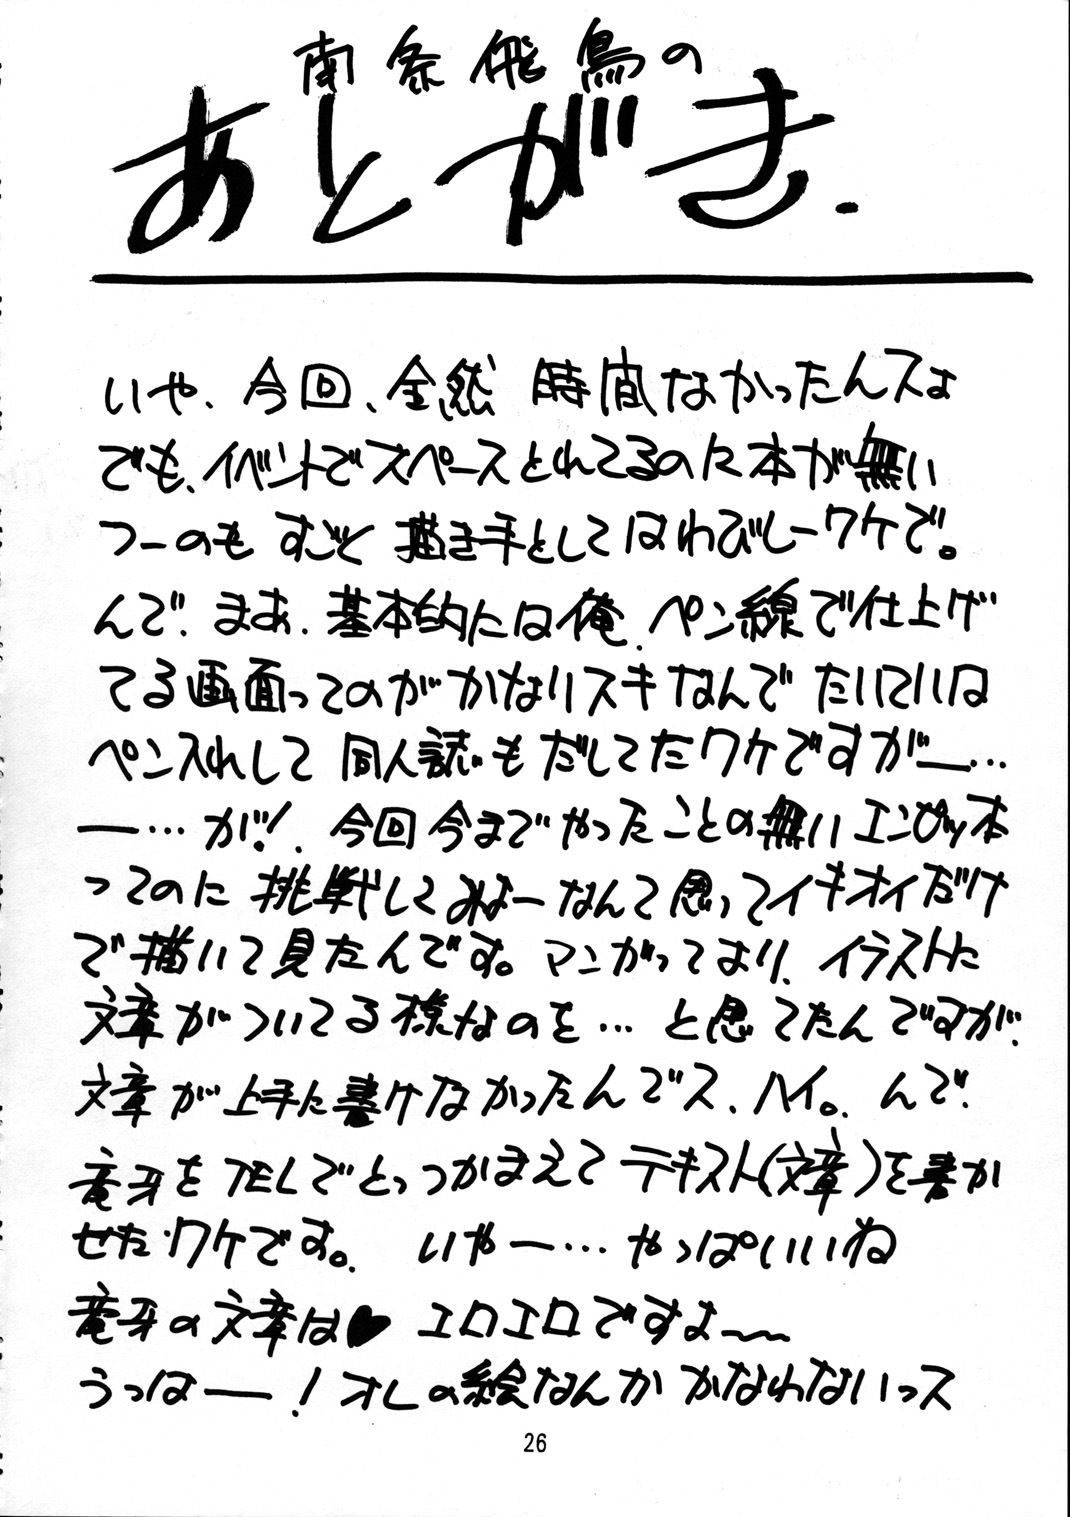 南条飛鳥の
あとがき.
いや、今回、全然 時間なかったんスよ
でも、イベントでスペースとれてるのに本が無い
つーのも すごと 描き手としてはわびしーワケで。
んで、まあ、基本的には俺、ペン線で仕上げ
てる画面ってのがかなりスキなんで たいていは
ペン入れして 同人誌もだしてたワケですが―…
―…が!、今回今までやったことの無いエンピツ本
ってのに 挑戦してみよーなんて思ってイキオイだけ
で描いて見たんです。マンガってより、イラストに
文章がついてる様なのを… と思ってたんですが、
文章が上手に書けなかったんでス、ハイ。んで、
竜牙をTELでとっつかまえてテキスト(文章)を書か
せたワケです。 いやー…やっぱいいね
竜牙の文章は♥ エロエロですよ~~
うっはー!オレの絵なんか かなわないっス
26